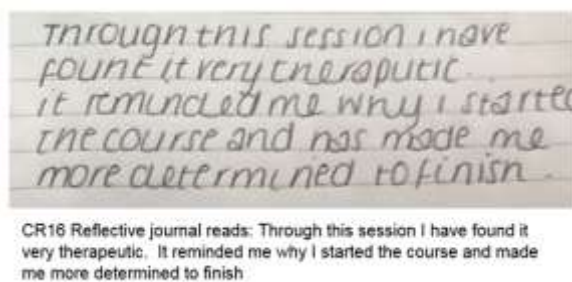 Through this session i have
found it very theraputic..
it reminded me why i started
the course and has made me
more determined to finish.
CR16 Reflective journal reads: Through this session I have found it
very therapeutic.  It reminded me why I started the course and made
me more determined to finish